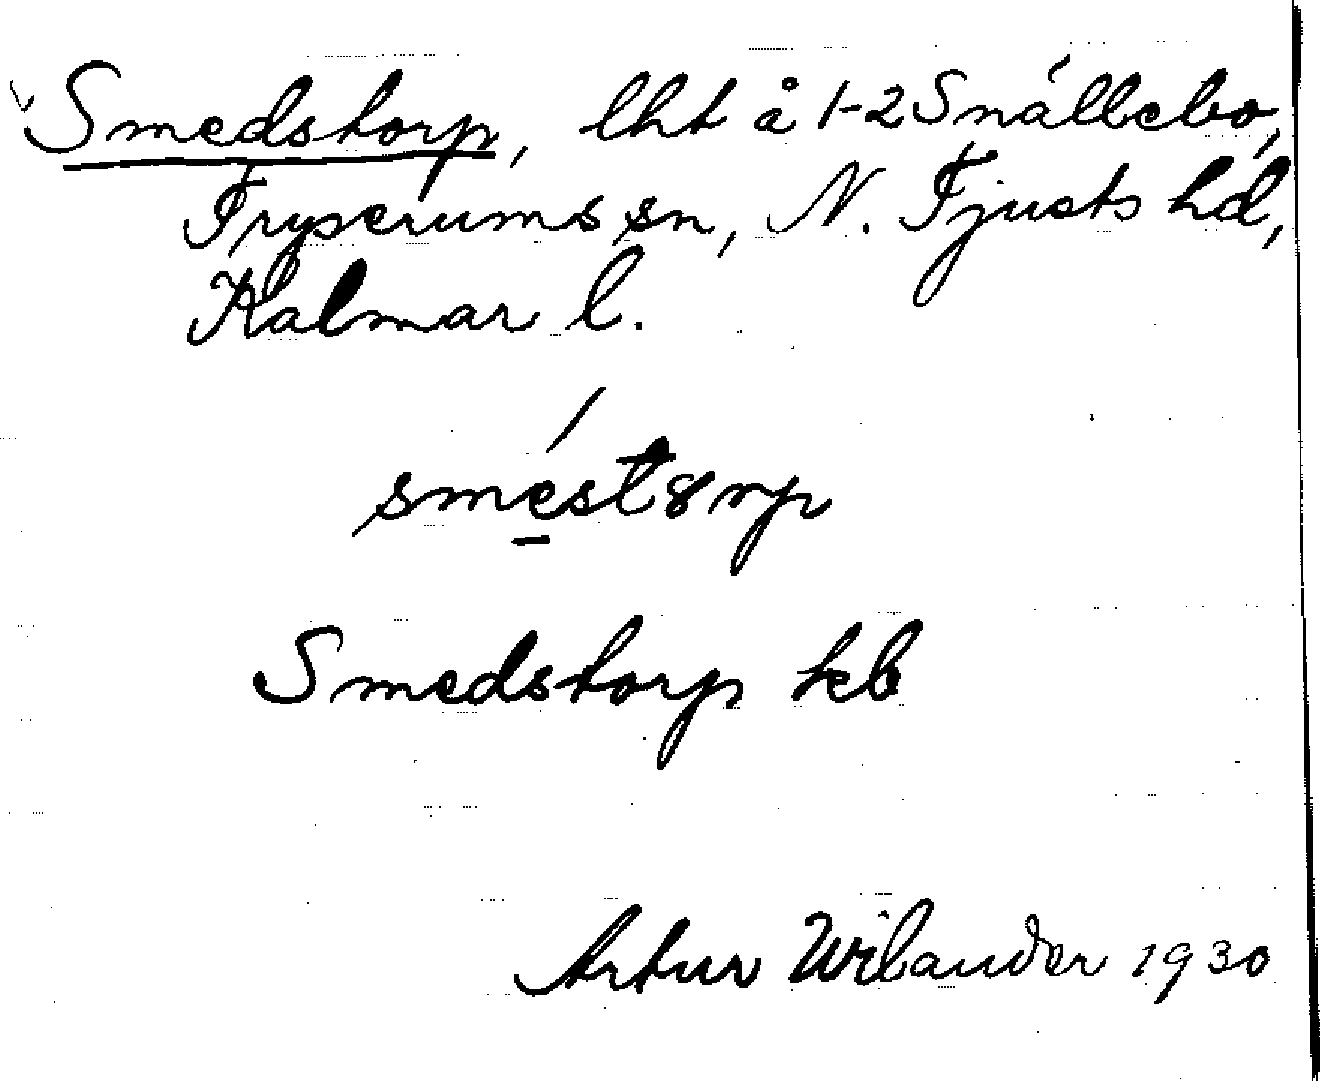 Smedstorp, lht å 1-2 Snällebo,
Tryserums sn, N. Tjusts hd,
Kalmar l.
smestørp
Smedstorp kb
Artur Wilander 1930